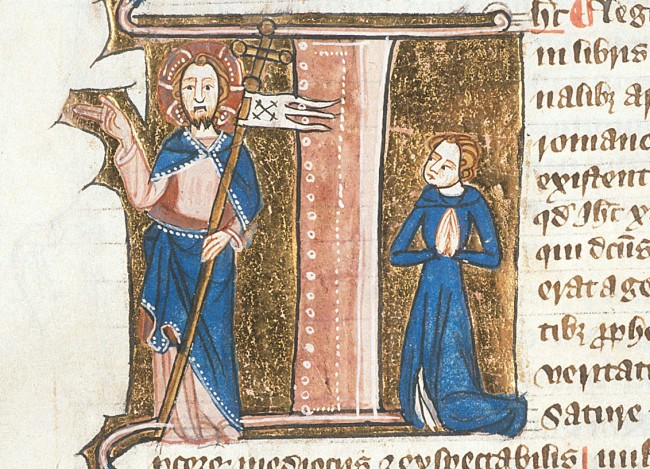 legi
in libris
ualibꝫ ap
romano
existent
qđ ihc x
qui dcūs
erat a ge
tibꝫ ꝓphe
ueritati
Sature
ꝓcere mediocris ⁊ exspectabilis